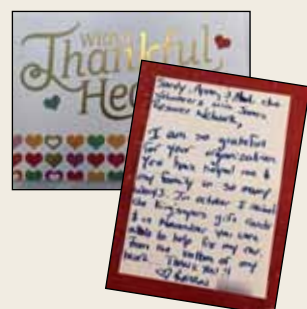 With a
Thankful
Hea
Sandy, Ann, & all the
Volunteers with James
Resource Network,
I am so grateful
for your organization.
You have helped me &
my family in so many
ways. In october I used
the King soopers gift cards
& in November you were
able to help fix my car.
From the bottom of my
heart Thank you!!